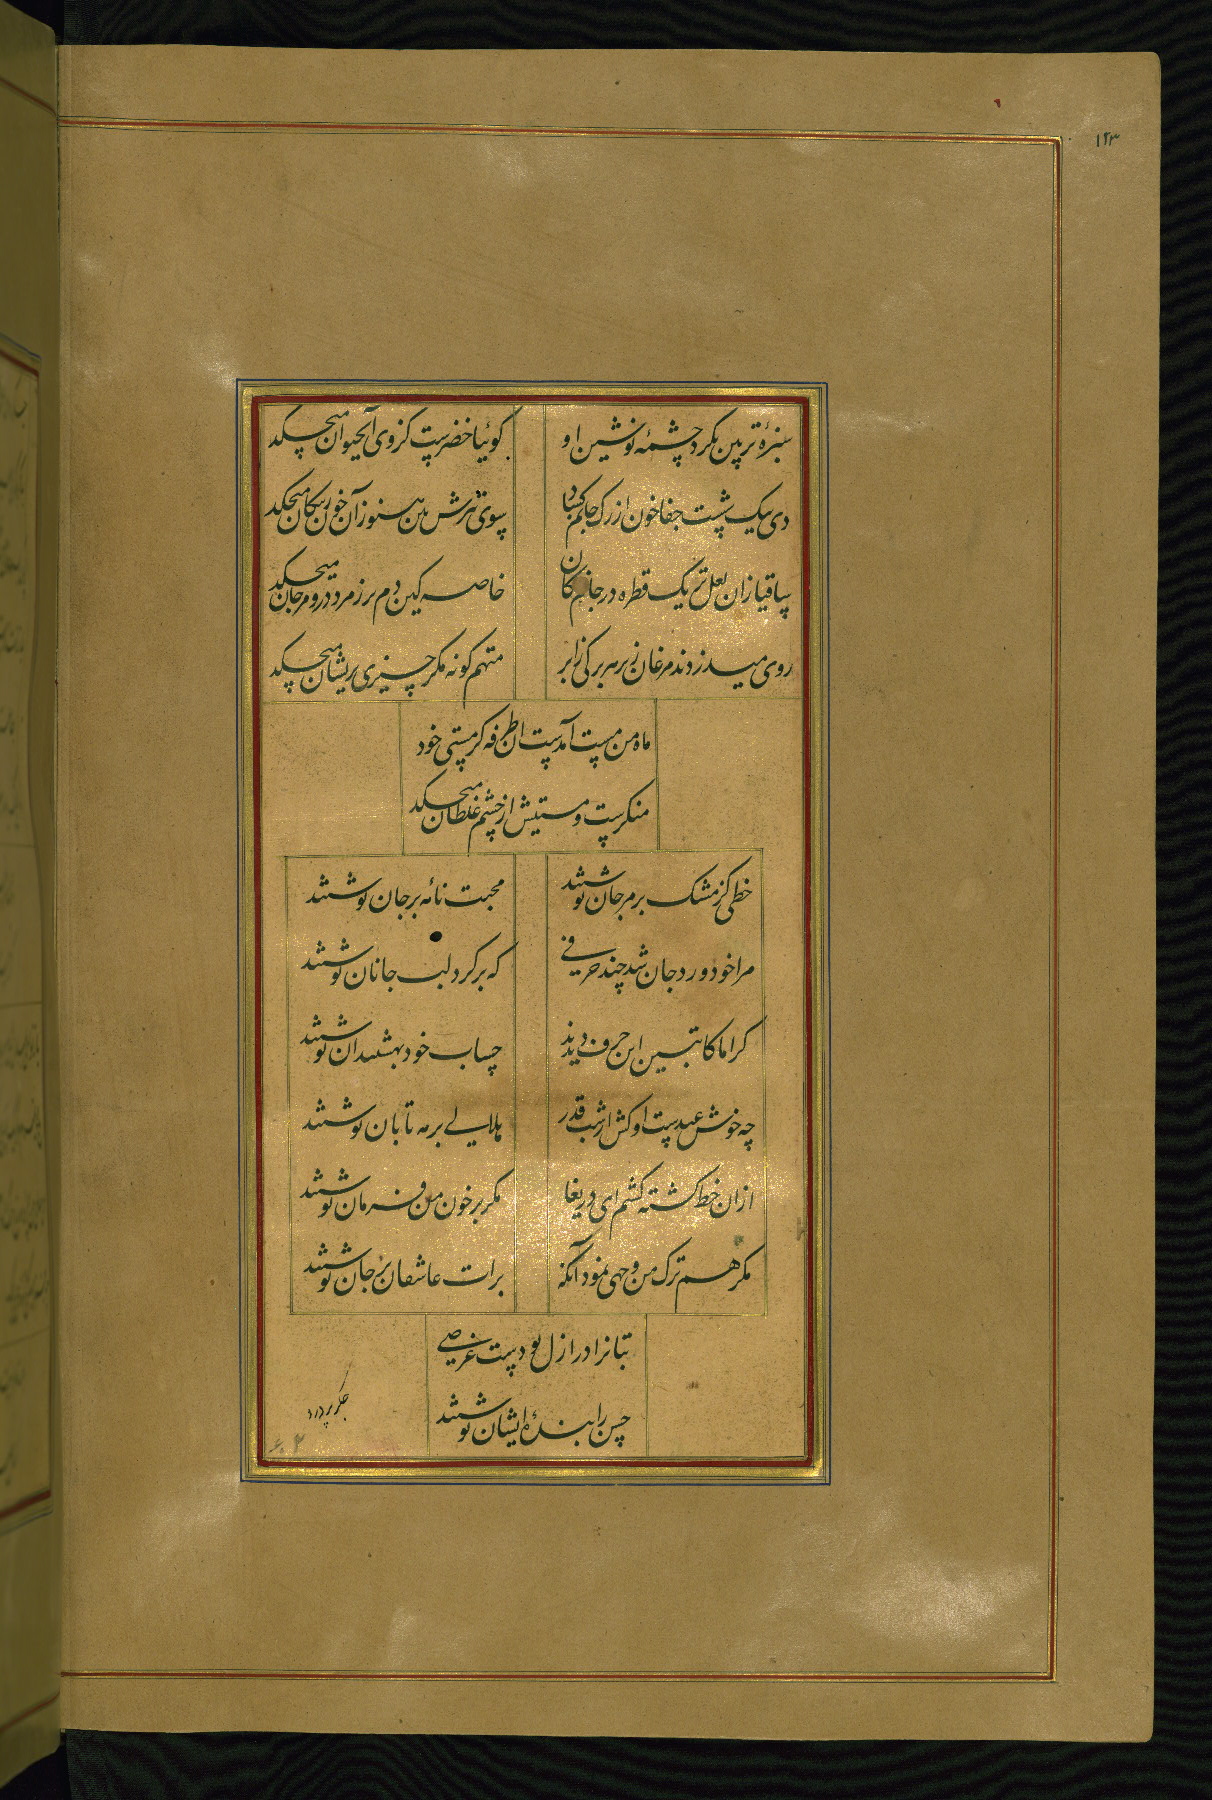 ۱۲۳
سبزهٔ تر بین بکرد چشمهٔ نوشین او
کوئیا خضرست کز وی آبحیوان میچکد
دی بیک پشت جفا خون از رک جانم کشاد
سوی تیرش بین هنوز آن خون ز پیکان میچکد
ساقیا زان لعل تر یک قطره در جانم کان
خاصه کین دم بر زمرد در و مرجان میچکد
روی میدزدند مرغان زیر هر برکی ز ابر
متهم کونه مکر چیزی بریشان میچکد
ماه من مست آمدست ان طرفه کز مستی خود
منکرست و مستیش از چشم غلطان میچکد
خطی کز مشک بر مرجان نوشتند
محبت نامهٔ بر جان نوشتند
مرا خود ورد جان شد چند حرفی
که بر کرد لب جانان نوشتند
کراما کاتبین این حرف دیدند
حساب خود بهشتند ان نوشتند
چه خوش عیدست او کش از شب قدر
هلالی بر مه تابان نوشتند
ازان خط کشته کشتم ای دریغا
مکر بر خون من فرمان نوشتند
مکر هم ترک من وجهی نمود آنکه
برات عاشقان بر جان نوشتند
بتانرا در ازل بودست عرضی
حسن را بندهٔ ایشان نوشتند
جکر پر درد